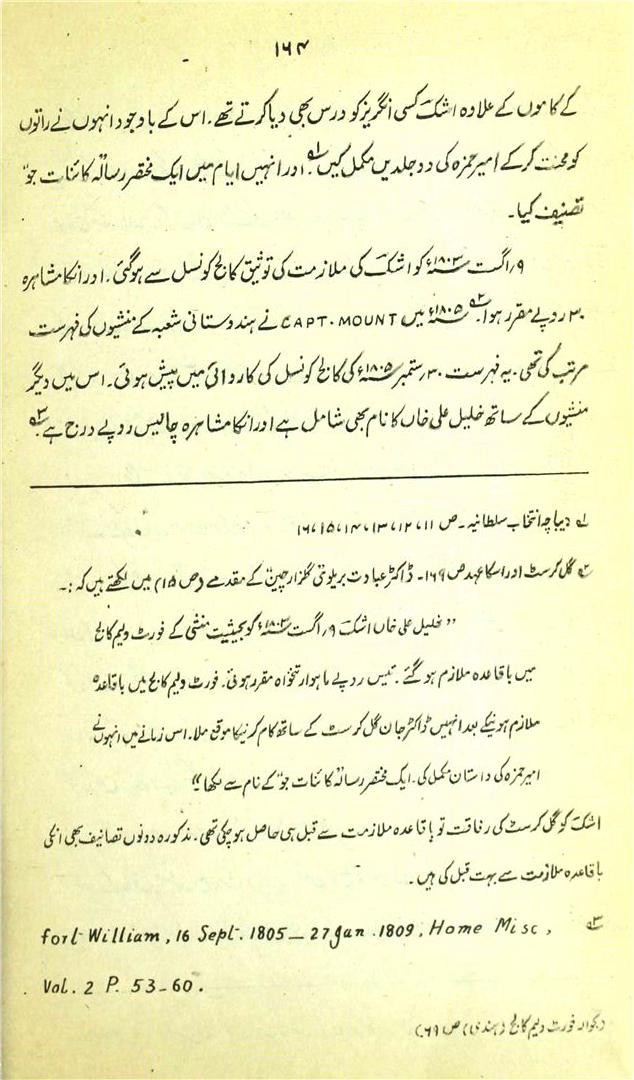 ۱۶۴
کے کاموں کے علاوہ اشکؔ کسی انگریز کو درس بھی دیا کرتے تھے۔ اس کے باوجود انہوں نے راتوں
کو محنت کرکے امیر حمزہ کی دو جلدیں مکمل کیں۔ ۱ہ اور انہیں ایام میں ایک مختصر رسالہ کائنات جوؔ
تصنیف کیا۔
۹؍ اگست ۱۸۰۳ء کو اشکؔ کی ملازمت کی توثیق کالج کونسل سے ہوگئی۔ اور انکا مشاہرہ
۳۰ روپے مقرر ہوا۔ ۲ہ ۱۸۰۵ء میں CAPT. MOUNT نے ہندوستانی شعبہ کے منشیوں کی فہرست
مرتب کی تھی۔ یہ فہرست ۳۰؍ ستمبر ۱۸۰۵ء کی کالج کونسل کی کاروائی میں پیش ہوئی۔ اس میں دیگر
منشیوں کے ساتھ خلیل علی خاں کا نام بھی شامل ہے اور انکا مشاہرہ چالیس روپے درج ہے۔ ۳ہ
۱ہ دیباچہ انتخاب سلطانیہ۔ ص ۱۱، ۱۲، ۱۳، ۱۴، ۱۵، ۱۶
۲ہ گل کرسٹ اور اسکا عہد ص ۱۶۹۔ ڈاکٹر عبادت بریلوی گلزار چین کے مقدمے (ص ۱۵) میں لکھتے ہیں کہ :۔
" خلیل علی خاں اشکؔ ۹؍ اگست ۱۸۰۳ء کو بحیثیت منشی کے فورٹ ولیم کالج
میں باقاعدہ ملازم ہو گئے۔ تیس روپے ماہوار تنخواہ مقرر ہوئی۔ فورٹ ولیم کالج میں باقاعدہ
ملازم ہونیکے بعد انہیں ڈاکٹر جان گل کرسٹ کے ساتھ کام کرنیکا موقع ملا۔ اس زمانے میں انہوں نے
امیر حمزہ کی داستان مکمل کی۔ ایک مختصر رسالہ کائنات جوؔ کے نام سے لکھا "
اشکؔ کو گل کرسٹ کی رفاقت تو باقاعدہ ملازمت سے قبل ہی حاصل ہو چکی تھی۔ مذکورہ دونوں تصانیف بھی انکی
باقاعدہ ملازمت سے بہت قبل کی ہیں۔
۳ہ fort William, 16 Sept. 1805 — 27 Jan. 1809, Home Misc,
Vol. 2 P. 53-60.
(بحوالہ فورٹ ولیم کالج (ہندی) ص ۶۹)